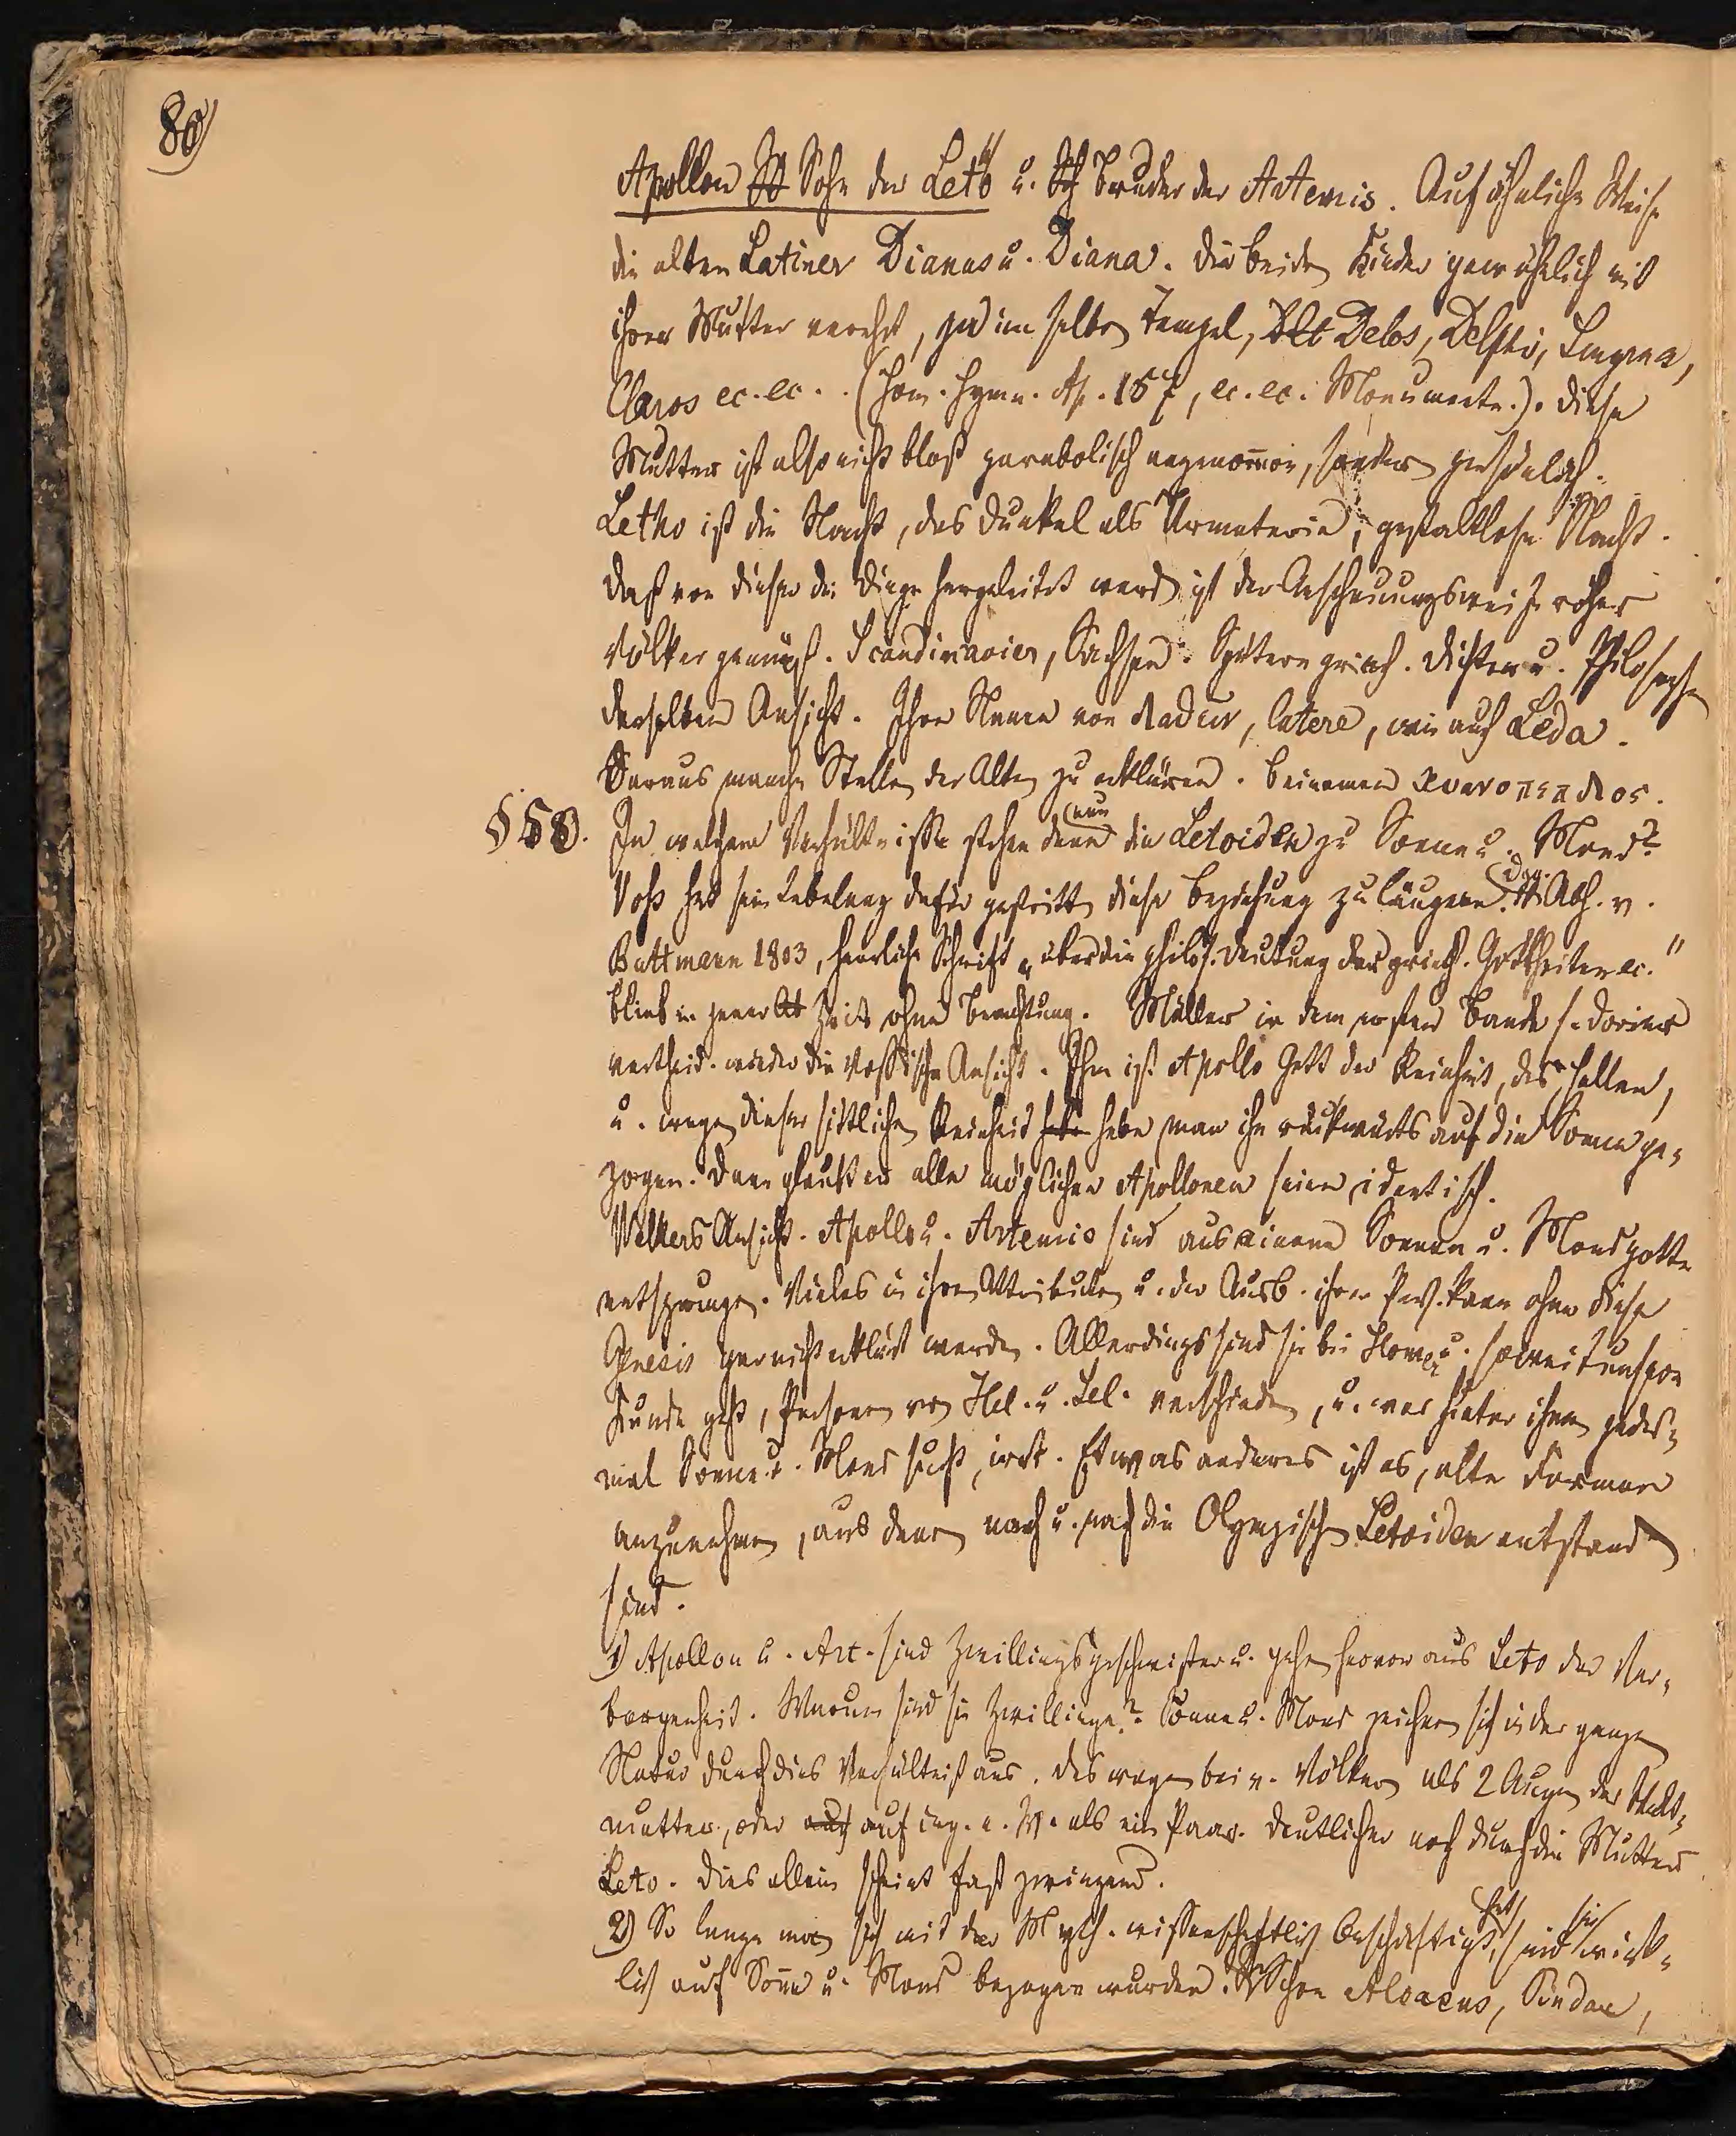 80)
Apollon Sohn der Leto u. Bruder der Artemis. Auf ähnliche Weise
die alten Latiner Dianus u. Diana. Die beiden Kinder gewöhnlich mit
ihrer Mutter verehrt, zu im selben Tempel, Delos, Delphi, Smyrna,
Claros ec. ec. (Hom. Hymn. Ap. 157, ec. ec. Monumente.). Diese
Mutter ist also nicht bloß parabolisch angenommen, sondern persönlich.
Letho ist die Nacht, das Dunkel als Urmaterie, gestaltlose Nacht.
Daß von dieser die Dinge hergeleitet werd. ist der Anschauungsweise roher
Völker gemäß. Scandinavier, Sachsen. Spätere griech. Dichter u. Philosophen
derselben Ansicht. Ihr Name von λαθειν, latere, wie auch Leda.
Daraus manche Stellen der Alten zu erklären. Beinamen κυανοπεπλος.
§ 58. In welchem Verhältnisse stehen denn nun die Letoiden zu Sonne u. Mond?
Voß hat sein Lebelang dafür gestritten diese Beziehung zu läugnen. Dag. Abh. v.
Buttmann 1803, herrliche Schrift „über die philos. Deutung der griech. Gottheiten ec."
blieb in jener Zeit ohne Beachtung. Müller in dem ersten Bande s. Dorier
vertheid. wieder die Vossische Ansicht. Ihm ist Apollo Gott der Reinheit, des Hellen,
u. wegen dieser sittlichen Reinheit habe man ihn rückwärts auf die Sonne ge-
zogen. Dann glaubt er alle möglichen Apollonen seien identisch.
Welkers Ansicht. Apollo u. Artemis sind aus einem Sonnen u. Mondgotte
entsprungen. Vieles in ihren Attributen u. der Ausb. ihrer Pers. kann ohne diese
Genesis gar nicht erklärt werden. Allerdings sind sie bei Homer u. soweit unsere
Kunde geht, Personen von Hel. u. Sel. verschieden, u. wer hinter ihnen jedes-
mal Sonne u. Mond sucht, irrt. Etwas anderes ist es, alte Formen
anzunehmen, aus denen nach u. nach die Olympischen Letoiden entstanden
sind.
1) Apollon u. Art. sind Zwillingsgeschwister u. gehen hervor aus Leto der Ver-
borgenheit. Warum sind sie Zwillinge? Sonne u. Mond zeichnen sich in der ganzen
Natur durch dies Verhältniß aus. Deswegen bei v. Völkern als 2 Augen der Welt-
mutter, oder auf irg. e. W. als ein Paar. Deutlicher noch durch die Mutter
Leto. Dies allein scheint fast zwingend.
2) So lange man sich mit der Myth. wissenschaftlich beschäftigt hat, sind sie wirk-
lich auf Sonne u. Mond bezogen wurden. Schon Alcaeus, Pindar,